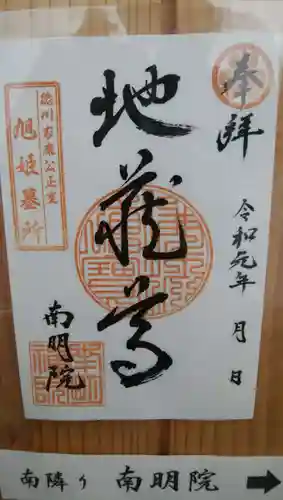 奉拝
令和元年 月 日
地蔵尊
南明院
徳川家康公正室
旭姫墓所
南隣り 南明院 →